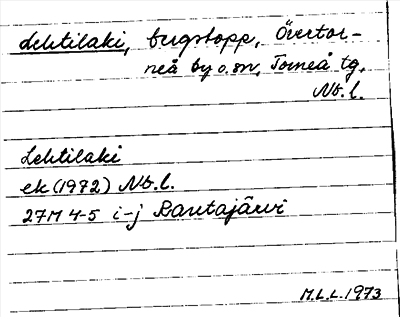 Lehtilaki, bergstopp, Övertor-
neå by o. sn, Torneå tg,
Nb. l.
Lehtilaki
ek (1972) Nb. l.
27M 4-5 i-j Rautajärvi
M.L.L. 1973